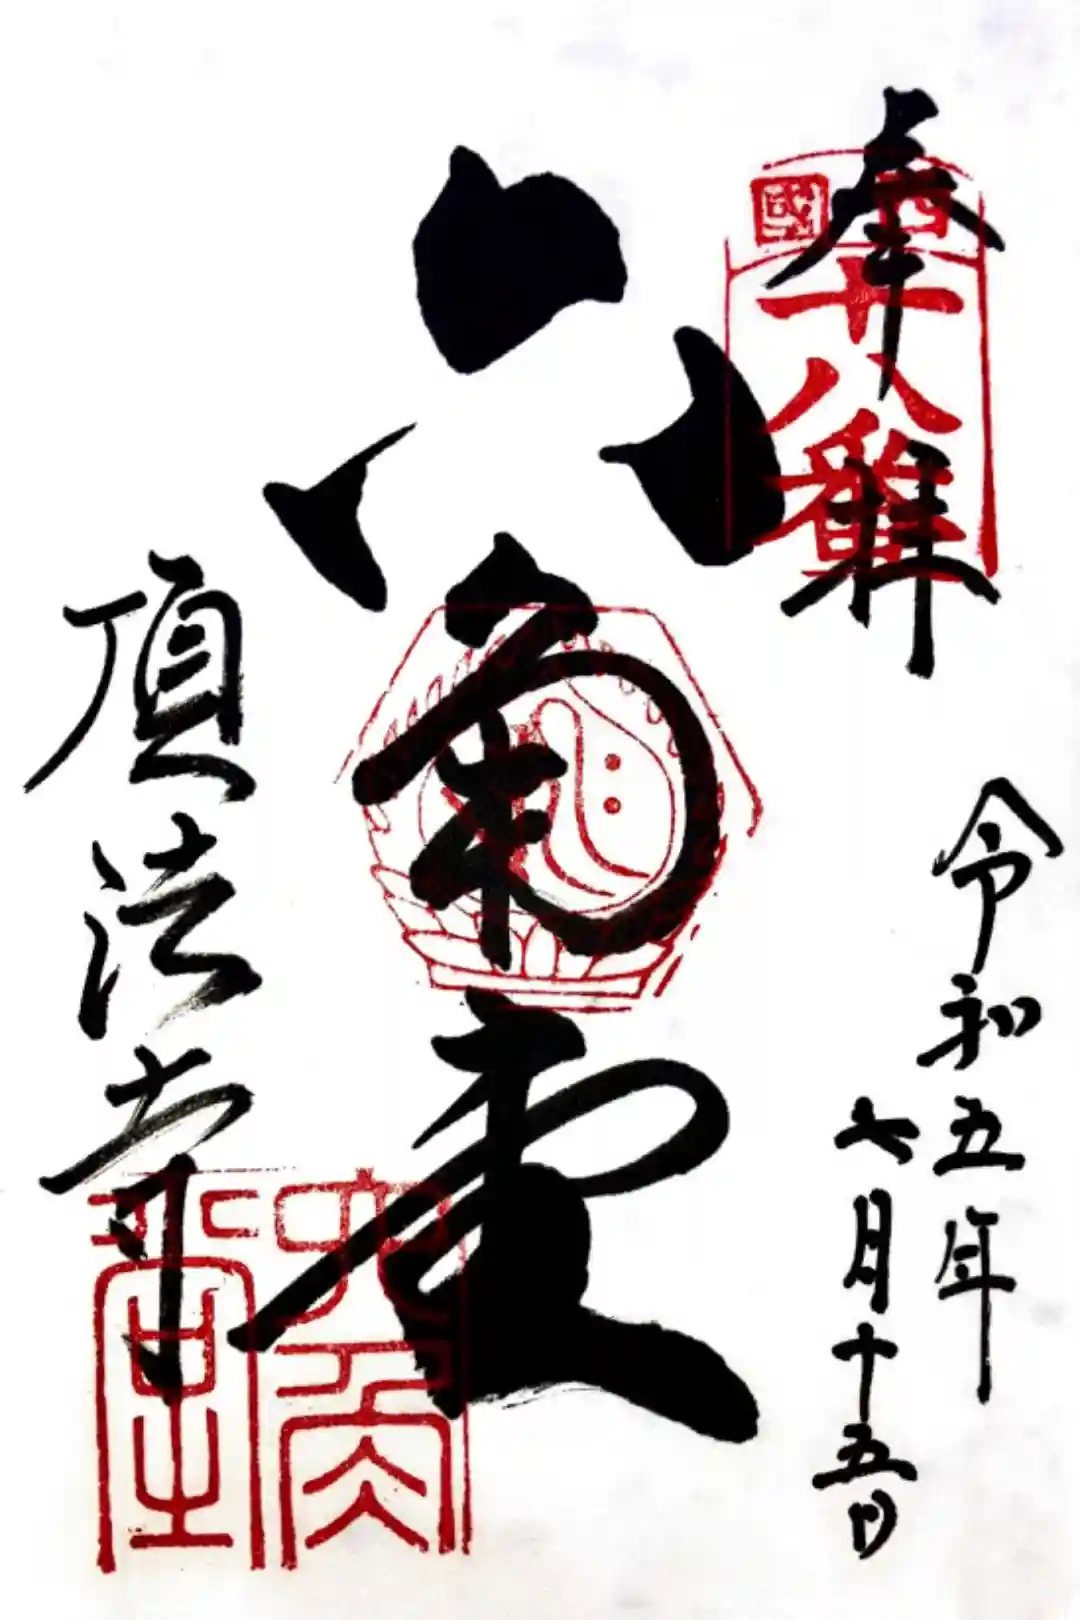 奉拝
西國
十八番
令和五年
七月十五日
六角堂
頂法寺
六角堂